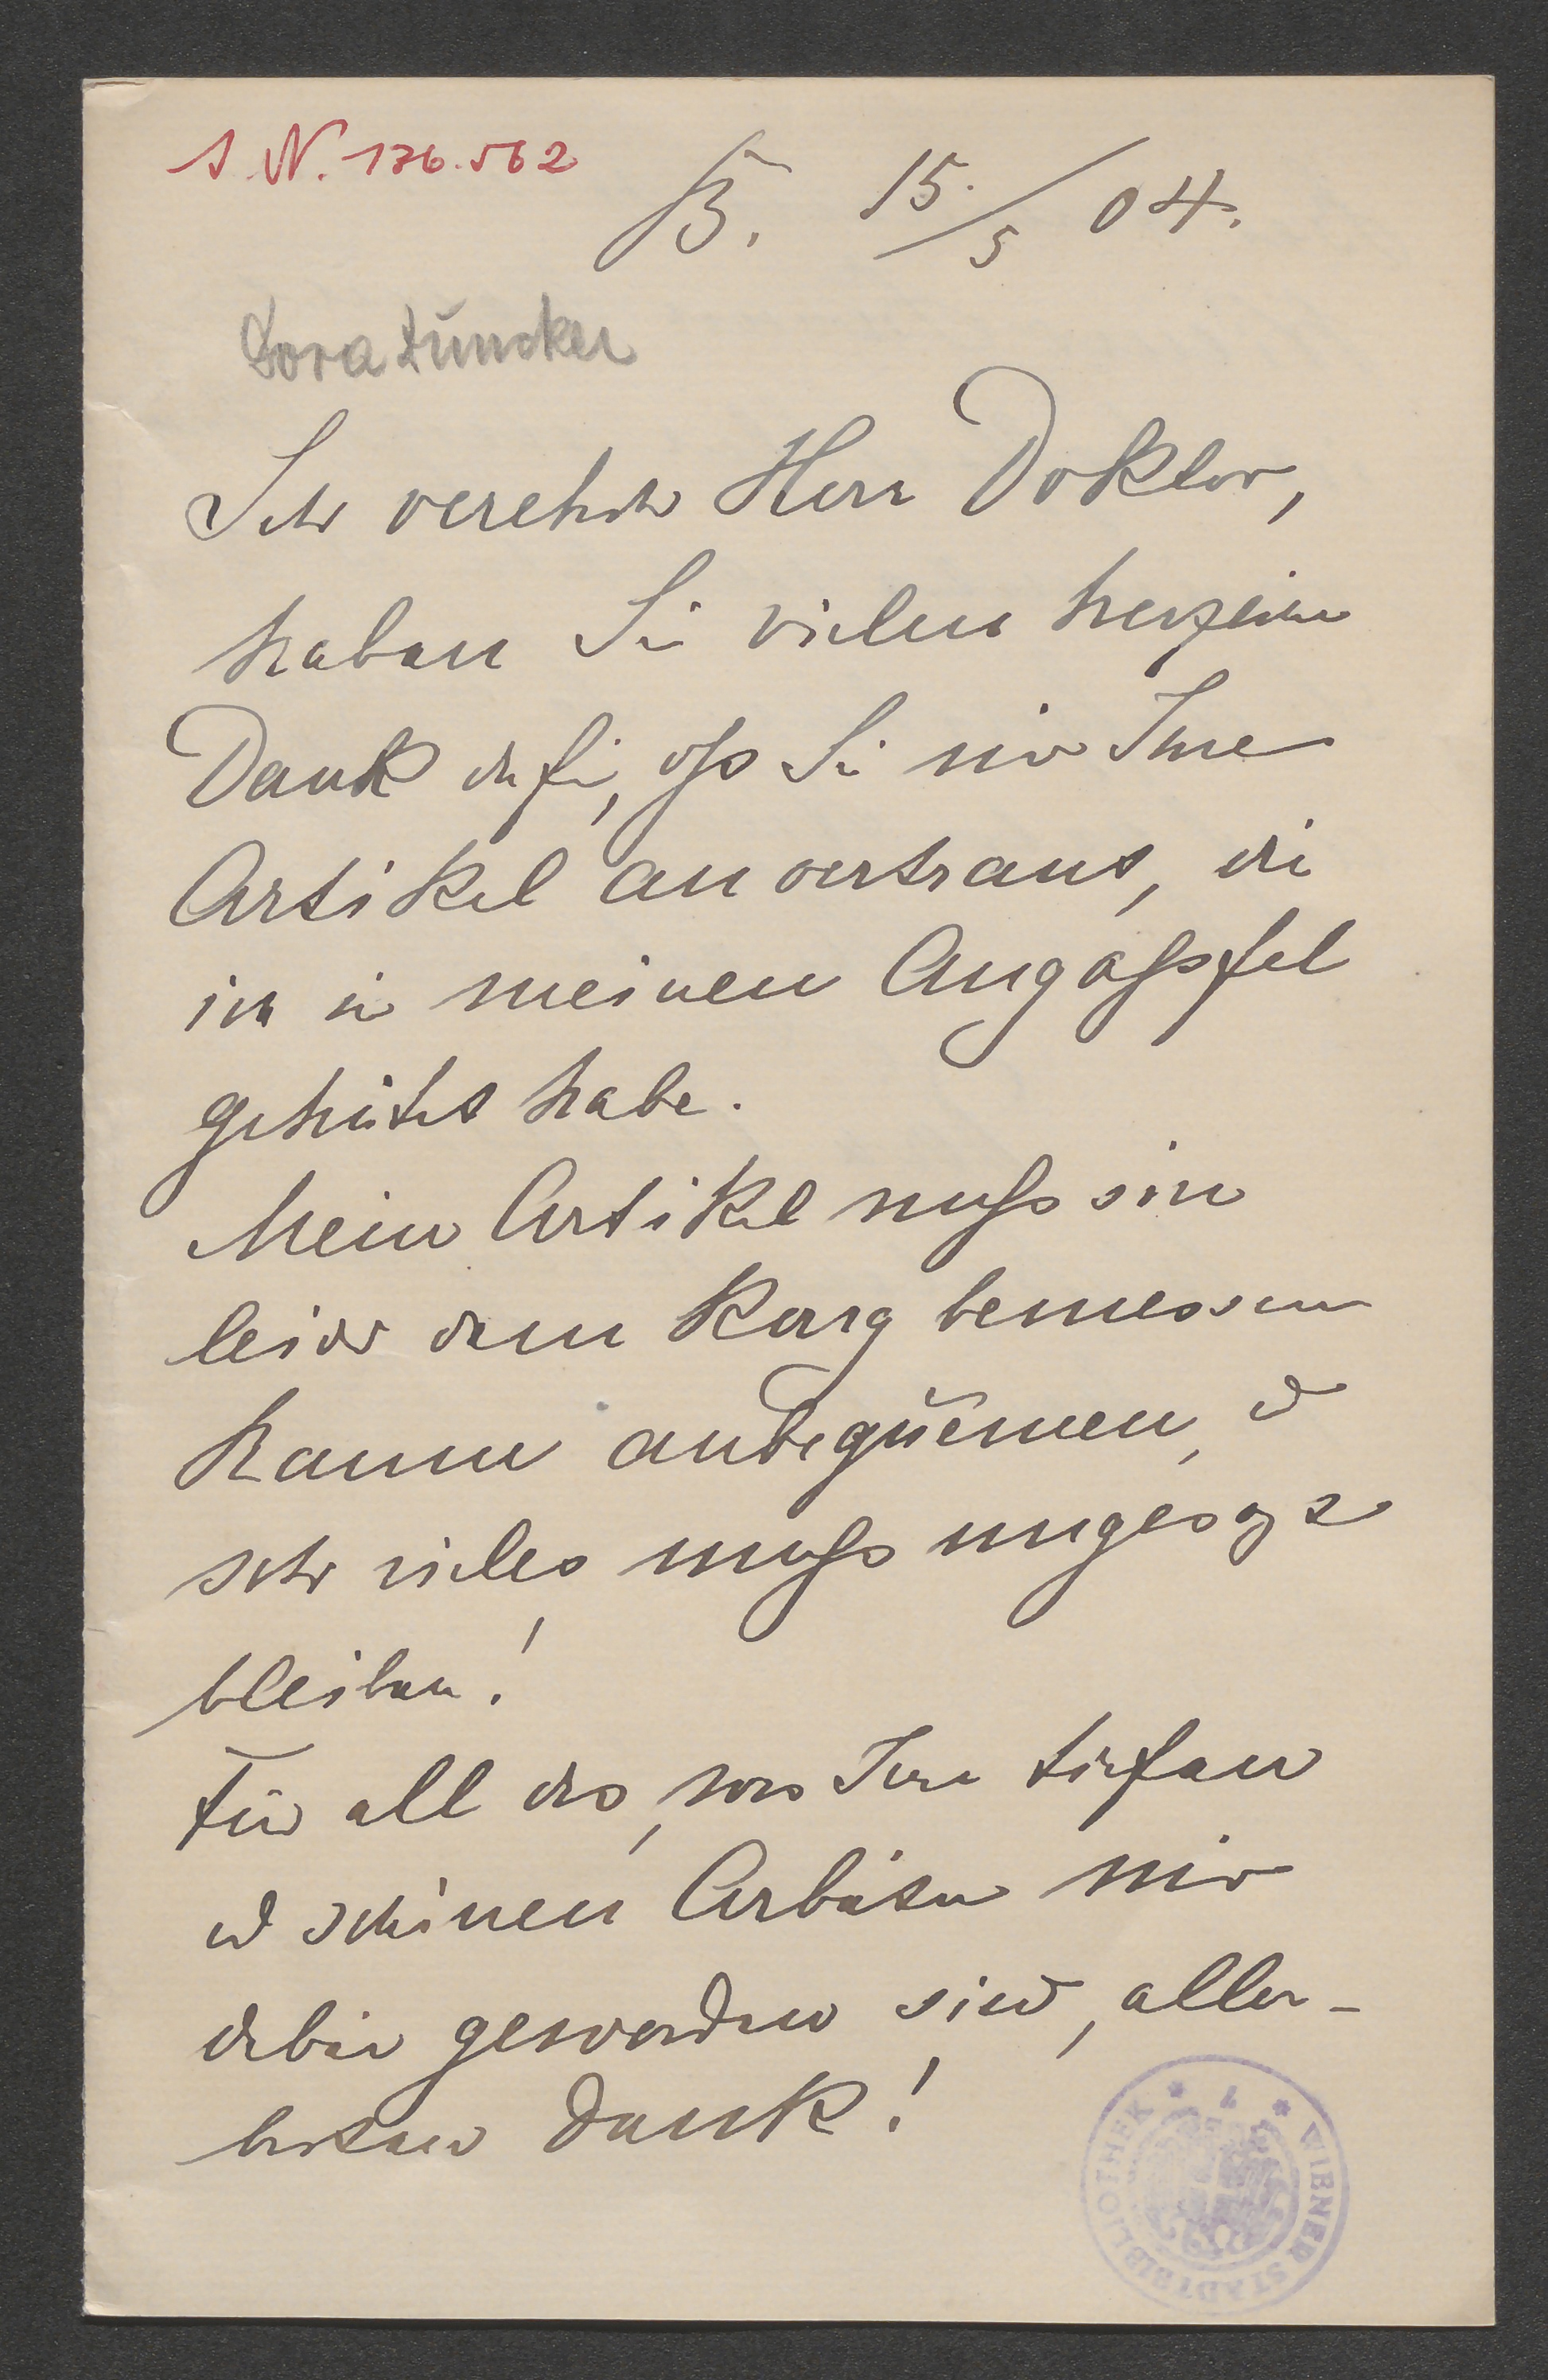 I. N. 176.562
B. 15./5 04.
Dora Duncker
Sehr verehrter Herr Doktor,
haben Sie vielen herzlichen
Dank dafür, dass Sie mir Ihre
Artikel anvertraut, die
ich wie meinen Augapfel
gehütet habe.
Mein Artikel muss sich
leider dem karg bemessenen
Raume anbequemen, u
sehr vieles muss ungesagt
bleiben!
Für all das, was Ihre tiefen
u schönen Arbeiten mir
dabei geworden sind, aller-
besten Dank!
WIENER STADTBIBLIOTHEK